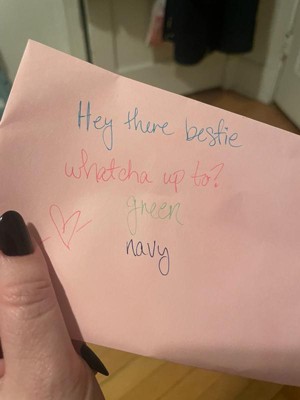 Hey there bestie
whatcha up to?
green
navy